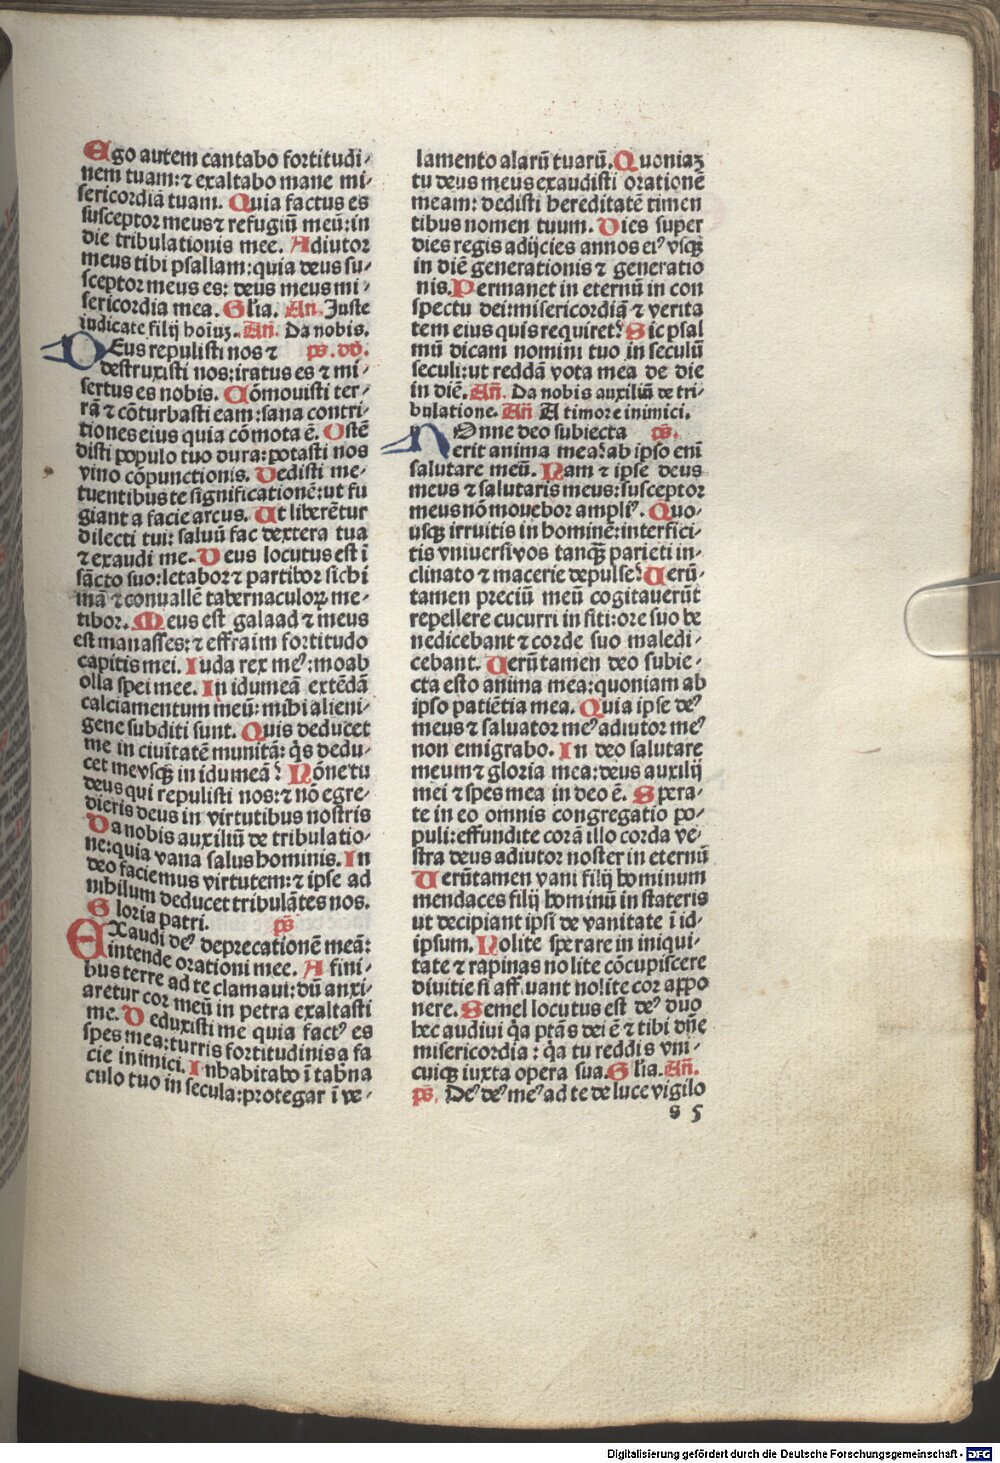 Ego autem cantabo fortitudi⸗
nem tuam: ⁊ exaltabo mane mi⸗
sericordiā tuam. Quia factus es
susceptor meus ⁊ refugiū meū: in
die tribulationis mee. Adiutor
meus tibi psallam: quia deus su⸗
sceptor meus es: deus meus mi⸗
sericordia mea. Glīa. Añ. Juste
iudicate filij hoīuꝫ. Añ. Da nobis.
DEus repulisti nos ⁊ p̄s. dd.
destruxisti nos: iratus es ⁊ mi⸗
sertus es nobis. Cōmouisti ter⸗
rā ⁊ cōturbasti eam: sana contri⸗
tiones eius quia cōmota ē. Ostē
disti populo tuo dura: potasti nos
vino cōpunctionis. Dedisti me⸗
tuentibus te significationē: ut fu
giant a facie arcus. Ut liberētur
dilecti tui: saluū fac dextera tua
⁊ exaudi me. Deus locutus est ī
sācto suo: letabor ⁊ partibor sichi
mā ⁊ conuallē tabernaculoꝝ me⸗
tibor. Meus est galaad ⁊ meus
est manasses: ⁊ effraim fortitudo
capitis mei. Iuda rex meꝰ: moab
olla spei mee. In idumeā extēdā
calciamentum meū: mihi alieni⸗
gene subditi sunt. Quis deducet
me in ciuitatē munitā: q̄s dedu⸗
cet me vsqꝫ in idumeā? Nōne tu
deus qui repulisti nos: ⁊ nō egre⸗
dieris deus in virtutibus nostris
Da nobis auxiliū de tribulatio⸗
ne: quia vana salus hominis. In
deo faciemus virtutem: ⁊ ipse ad
nihilum deducet tribulātes nos.
Gloria patri. p̄s
EXaudi deꝰ deprecationē meā:
intende orationi mee. A fini⸗
bus terre ad te clamaui: dū anxi⸗
aretur cor meū in petra exaltasti
me. Deduxisti me quia factꝰ es
spes mea: turris fortitudinis a fa
cie inimici. Inhabitabo ī tabna
culo tuo in secula: protegar ī ve⸗
lamento alarū tuarū. Quoniaꝫ
tu deus meus exaudisti orationē
meam: dedisti hereditatē timen
tibus nomen tuum. Dies super
dies regis adijcies annos eiꝰ vsqꝫ
in diē generationis ⁊ generatio
nis. Permanet in eternū in con
spectu dei: misericordiā ⁊ verita
tem eius quis requiret? Sic psal
mū dicam nomini tuo in seculū
seculi: ut reddā vota mea de die
in diē. Añ. Da nobis auxiliū de tri⸗
bulatione. Añ A timore inimici.
NOnne deo subiecta p̄s.
erit anima mea: ab ipso eni
salutare meū. Nam ⁊ ipse deus
meus ⁊ salutaris meus: susceptor
meus nō mouebor ampliꝰ. Quo⸗
usqꝫ irruitis in hominē: interfici⸗
tis vniversi vos tanqꝫ parieti in⸗
clinato ⁊ macerie depulse? Uerū⸗
tamen preciū meū cogitauerūt
repellere cucurri in siti: ore suo be
nedicebant ⁊ corde suo maledi⸗
cebant. Uerūtamen deo subie⸗
cta esto anima mea: quoniam ab
ipso patiētia mea. Quia ipse deꝰ
meus ⁊ saluator meꝰ adiutor meꝰ
non emigrabo. In deo salutare
meum ⁊ gloria mea: deus auxilij
mei ⁊ spes mea in deo ē. Spera⸗
te in eo omnis congregatio po⸗
puli: effundite corā illo corda ve⸗
stra deus adiutor noster in eternū
Uerūtamen vani filij hominum
mendaces filij hominū in stateris
ut decipiant ipsi de vanitate ī id⸗
ipsum. Nolite sperare in iniqui⸗
tate ⁊ rapinas nolite cōcupiscere
divitie si affluant nolite cor appo
nere. Semel locutus est deꝰ duo
hec audiui q̄a ptās dei ē ⁊ tibi dn̄e
misericordia: q̄a tu reddis vni⸗
cuiqꝫ iuxta opera sua. Glīa. Añ.
p̄s. Deꝰ deꝰ meꝰ ad te de luce vigilo
s 5
Digitalisierung gefördert durch die Deutsche Forschungsgemeinschaft - DFG